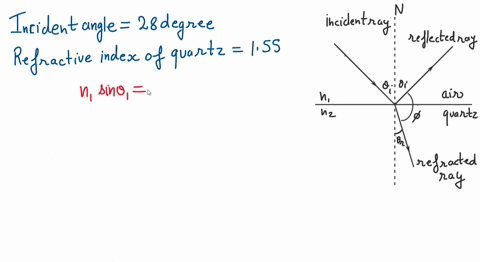 Incident angle = 28 degree
Refractive index of quartz = 1.55
n₁ sinθ₁ =
N
incident ray
reflected ray
θi θi
n₁ air
n₂ quartz
ϕ
θr
refracted
ray